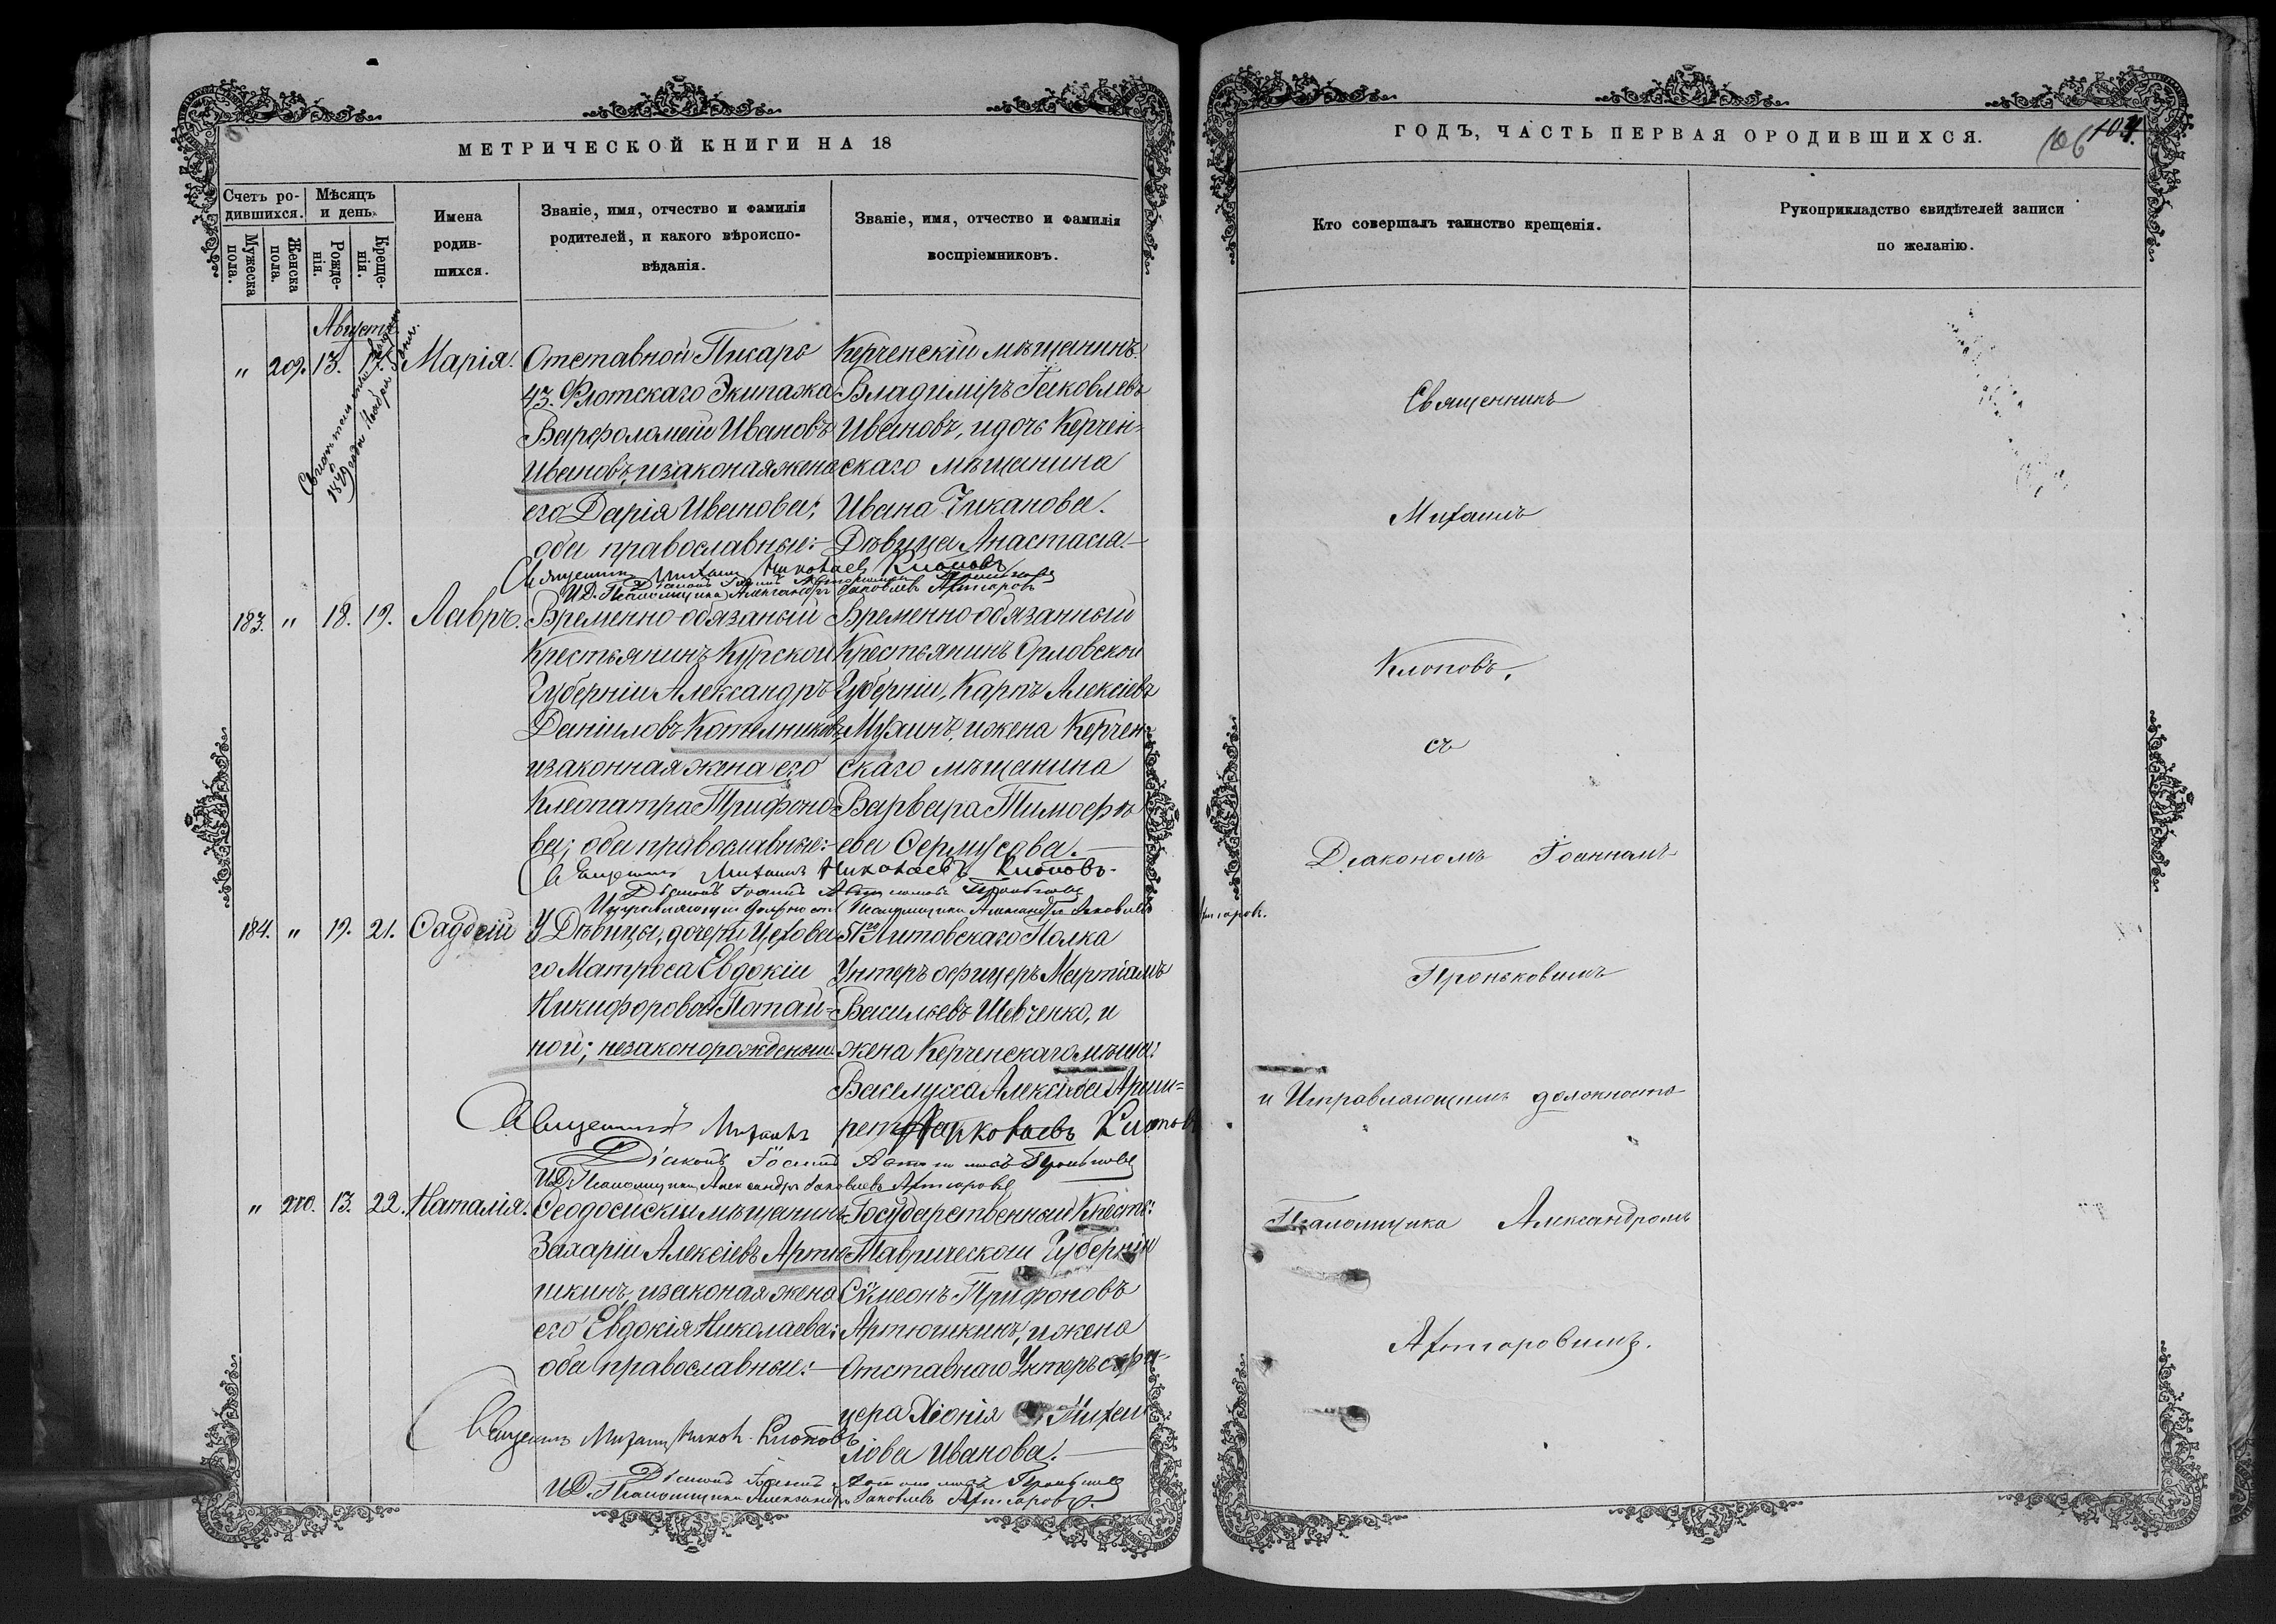 МЕТРИЧЕСКОЙ КНИГИ НА 18
Счетъ ро-
дившихся.
Мѣсяцъ
и день.
Мужеска
пола.
Женска
пола.
Рожде-
нія.
Креще-
нія.
Имена
родив-
шихся.
Званіе, имя, отчество и фамилія
родителей, и какого вѣроиспо-
вѣданія.
Званіе, имя, отчество и фамилія
воспріемниковъ.
Августъ
" 209. 13. 17. Марія.
Отставной Писарь
43. Флотскаго Экипажа
Варфоломей Ивановъ
Ивановъ, и законая жена
его Дарія Иванова;
оба православные:
Керченскій мѣщанинъ
Владиміръ Іаковлевъ
Ивановъ, и дочь Керчен-
скаго мѣщанина
Ивана Чиканова
Дѣвица Анастасія.
Священникъ Михаилъ Николаевъ Клоповъ
Діаконъ Іоаннъ
И.Д. Псаломщика Александръ Іаковлевъ
183. " 18. 19. Лавръ.
Временно-обязаный
Крестьянинъ Курской
Губерніи Александръ
Даніиловъ Котелниковъ,
и законная жена его
Клеопатра Трифоно-
ва; оба православные:
Временно обязанный
Крестьянинъ Орловской
Губерніи, Карпъ Алексіевъ
Мухинъ, и жена Керчен-
скаго мѣщанина
Варвара Тимофѣ
ева
Священникъ Михаилъ Николаевъ Клоповъ
Діаконъ Іоаннъ
Исправляющій должность Псаломщика Александръ Іаковлевъ
184. " 19. 21.
У Дѣвицы, дочери
го Матроса Евдокіи
Никифоровой Потай-
ной; незаконорожденный
51го Литовскаго Полка
Унтеръ офицеръ Мартіанъ
Васильевъ Шевченко, и
жена Керченскаго мѣщан:
Священникъ Михаилъ Николаевъ Клоповъ
Діаконъ Іоаннъ
И.Д. Псаломщика Александръ Іаковлевъ
" 210. 13. 22. Наталія.
Ѳеодосійскій мѣщанинъ
Захарій Алексіевъ Артю
шкинъ, и законая жена
его Евдокія Николаева;
оба православные:
Государственный Крест:
Таврической Губерніи
Сѵмеонъ Трифоновъ
Артюшкинъ, и жена
Отставнаго Унтеръ офи-
цера Хіонія Михаи
лова Иванова.
Священникъ Михаилъ Никол. Клоповъ
Діаконъ Іоаннъ
И.Д. Псаломщика Александръ Іаковлевъ
ГОДЪ, ЧАСТЬ ПЕРВАЯ О РОДИВШИХСЯ.
106 104.
Кто совершалъ таинство крещенія.
Рукоприкладство свидѣтелей записи
по желанію.
Священникъ
Михаилъ
Клоповъ,
съ
Діакономъ Іоанномъ
Проньковимъ
и Исправляющимъ должность
Псаломщика Александромъ